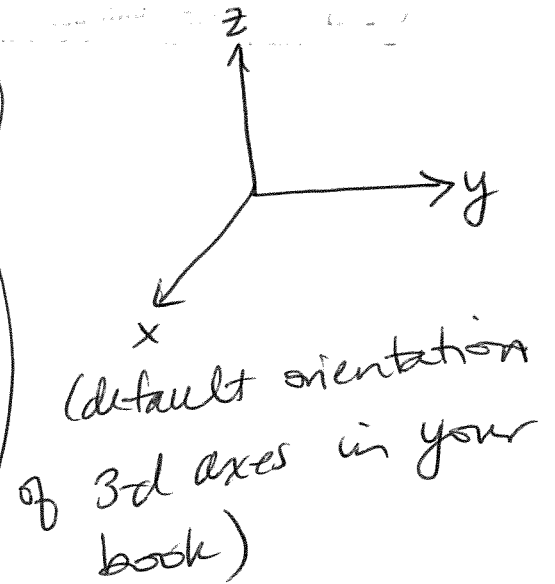 z
y
x
(default orientation
of 3-d axes in your
book)